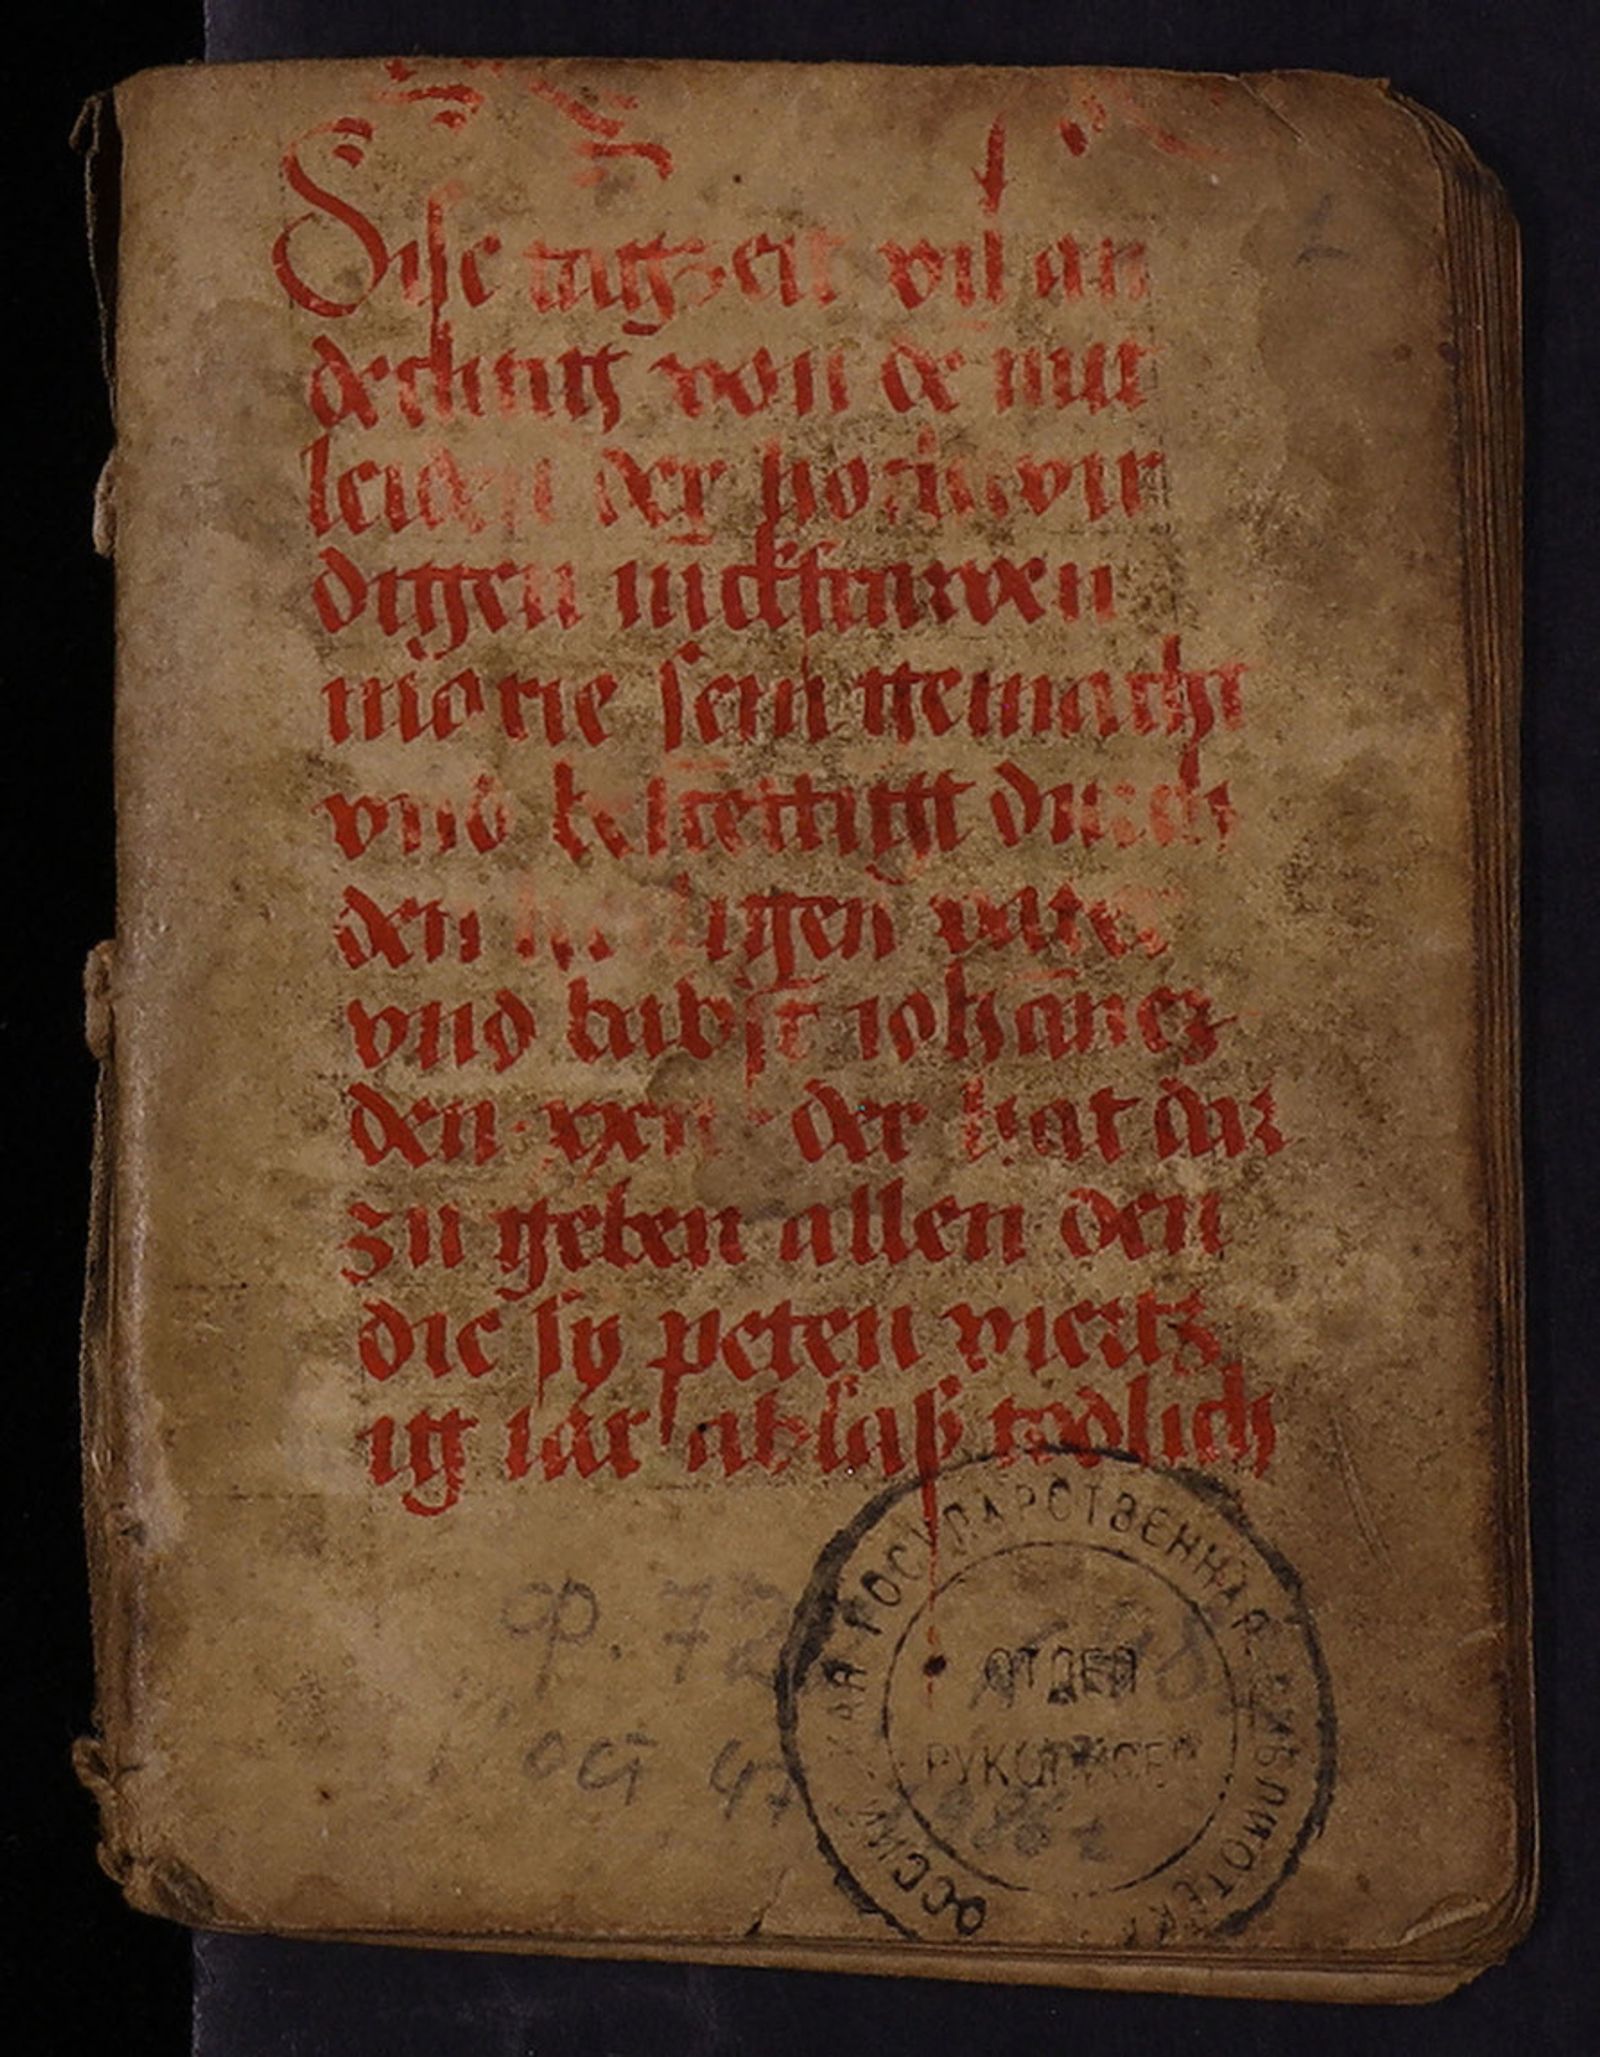 Dise tagzeit vnd an
dechtig von de mit
leiden der hochwir
digen iückfrawen
marie sein gemacht
vnd bestettigt durch
den heiligen vatter
vnd babst iohānez
den der hat dar
zu geben allen den
die sy peten viertz
ig iar ablaß todlich
ф. 72
ОСТ 47
986 г
РОССИЙСКАЯ ГОСУДАРСТВЕННАЯ БИБЛИОТЕКА
ОТДЕЛ
РУКОПИСЕЙ